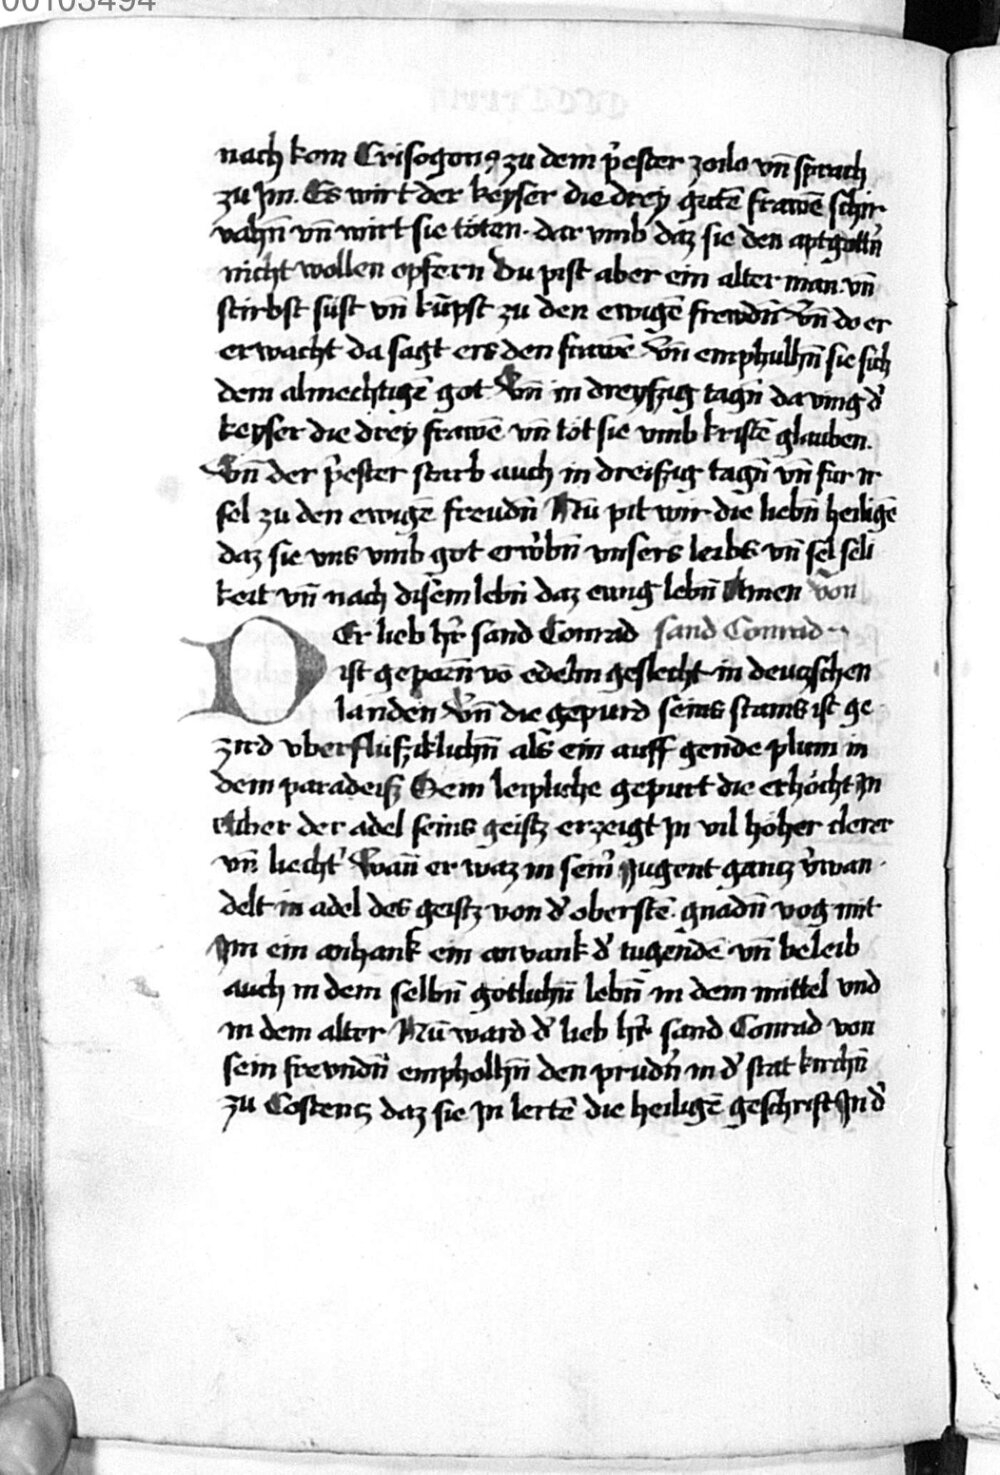 00103494
nach kom Crisogonꝰ zu dem p̾ester zoilo vn̄ sprach
zu Jm. Es wirt der keyser die drey gutē frawē schir
vahn̄ vn̄ wirt sie töten. dar vmb daz sie den aptgottn̄
nicht wollen opfern Du pist aber ein alter man. vn̄
stirbst süst vn̄ kūpst zu den ewigē frewdn̄ Vn̄ do er
erwacht da sagt ers den frawē Vn̄ emphulhn̄ sie sich
dem almechtigē got Vn̄ in dreyszig tagn̄ da ving d̾
keyser die drey frawē vn̄ töt sie vmb kristē glauben.
Vn̄ der p̾ester starb auch in dreiszig tagn̄ vn̄ fur ir
sel zu den ewigē freudn̄ Nū pit wir die liebn̄ heiligē
daz sie vns vmb got erw̾bn̄ vnsers leibs vn̄ sel seli
keit vn̄ nach disem lebn̄ daz ewig lebn̄ Amen von
DEr lieb hr̄ sand Conrad sand Conrad
ist geporn̄ vō edelm geslecht in deuczschen
landen Vn̄ die gepurd seins stams ist ge
zird vberflüsziklichn̄ als ein auff gende plum in
dem paradeisz Sein leipliche gepurt die erhöcht Jn
Aber der adel seins geistz erzeigt Jn vil höher clerer
vn̄ liecht̾ Wan̄ er waz in sein̾ Jugent gancz v̾wan
delt in adel des geistz von d̾ oberstē gnadn̄ vog mit
Jm ein anhank ein anvank d̾ tugendē vn̄ beleib
auch in dem selbn̄ götlichn̄ lebn̄ in dem mittel vnd
in dem alter Nū ward d̾ lieb hr̄ sand Conrad von
sein frevndn̄ empholhn̄ den prudn̄ in d̾ stat kirchn̄
zu Costencz daz sie Jn lertē die heiligē geschrift Jn d̾